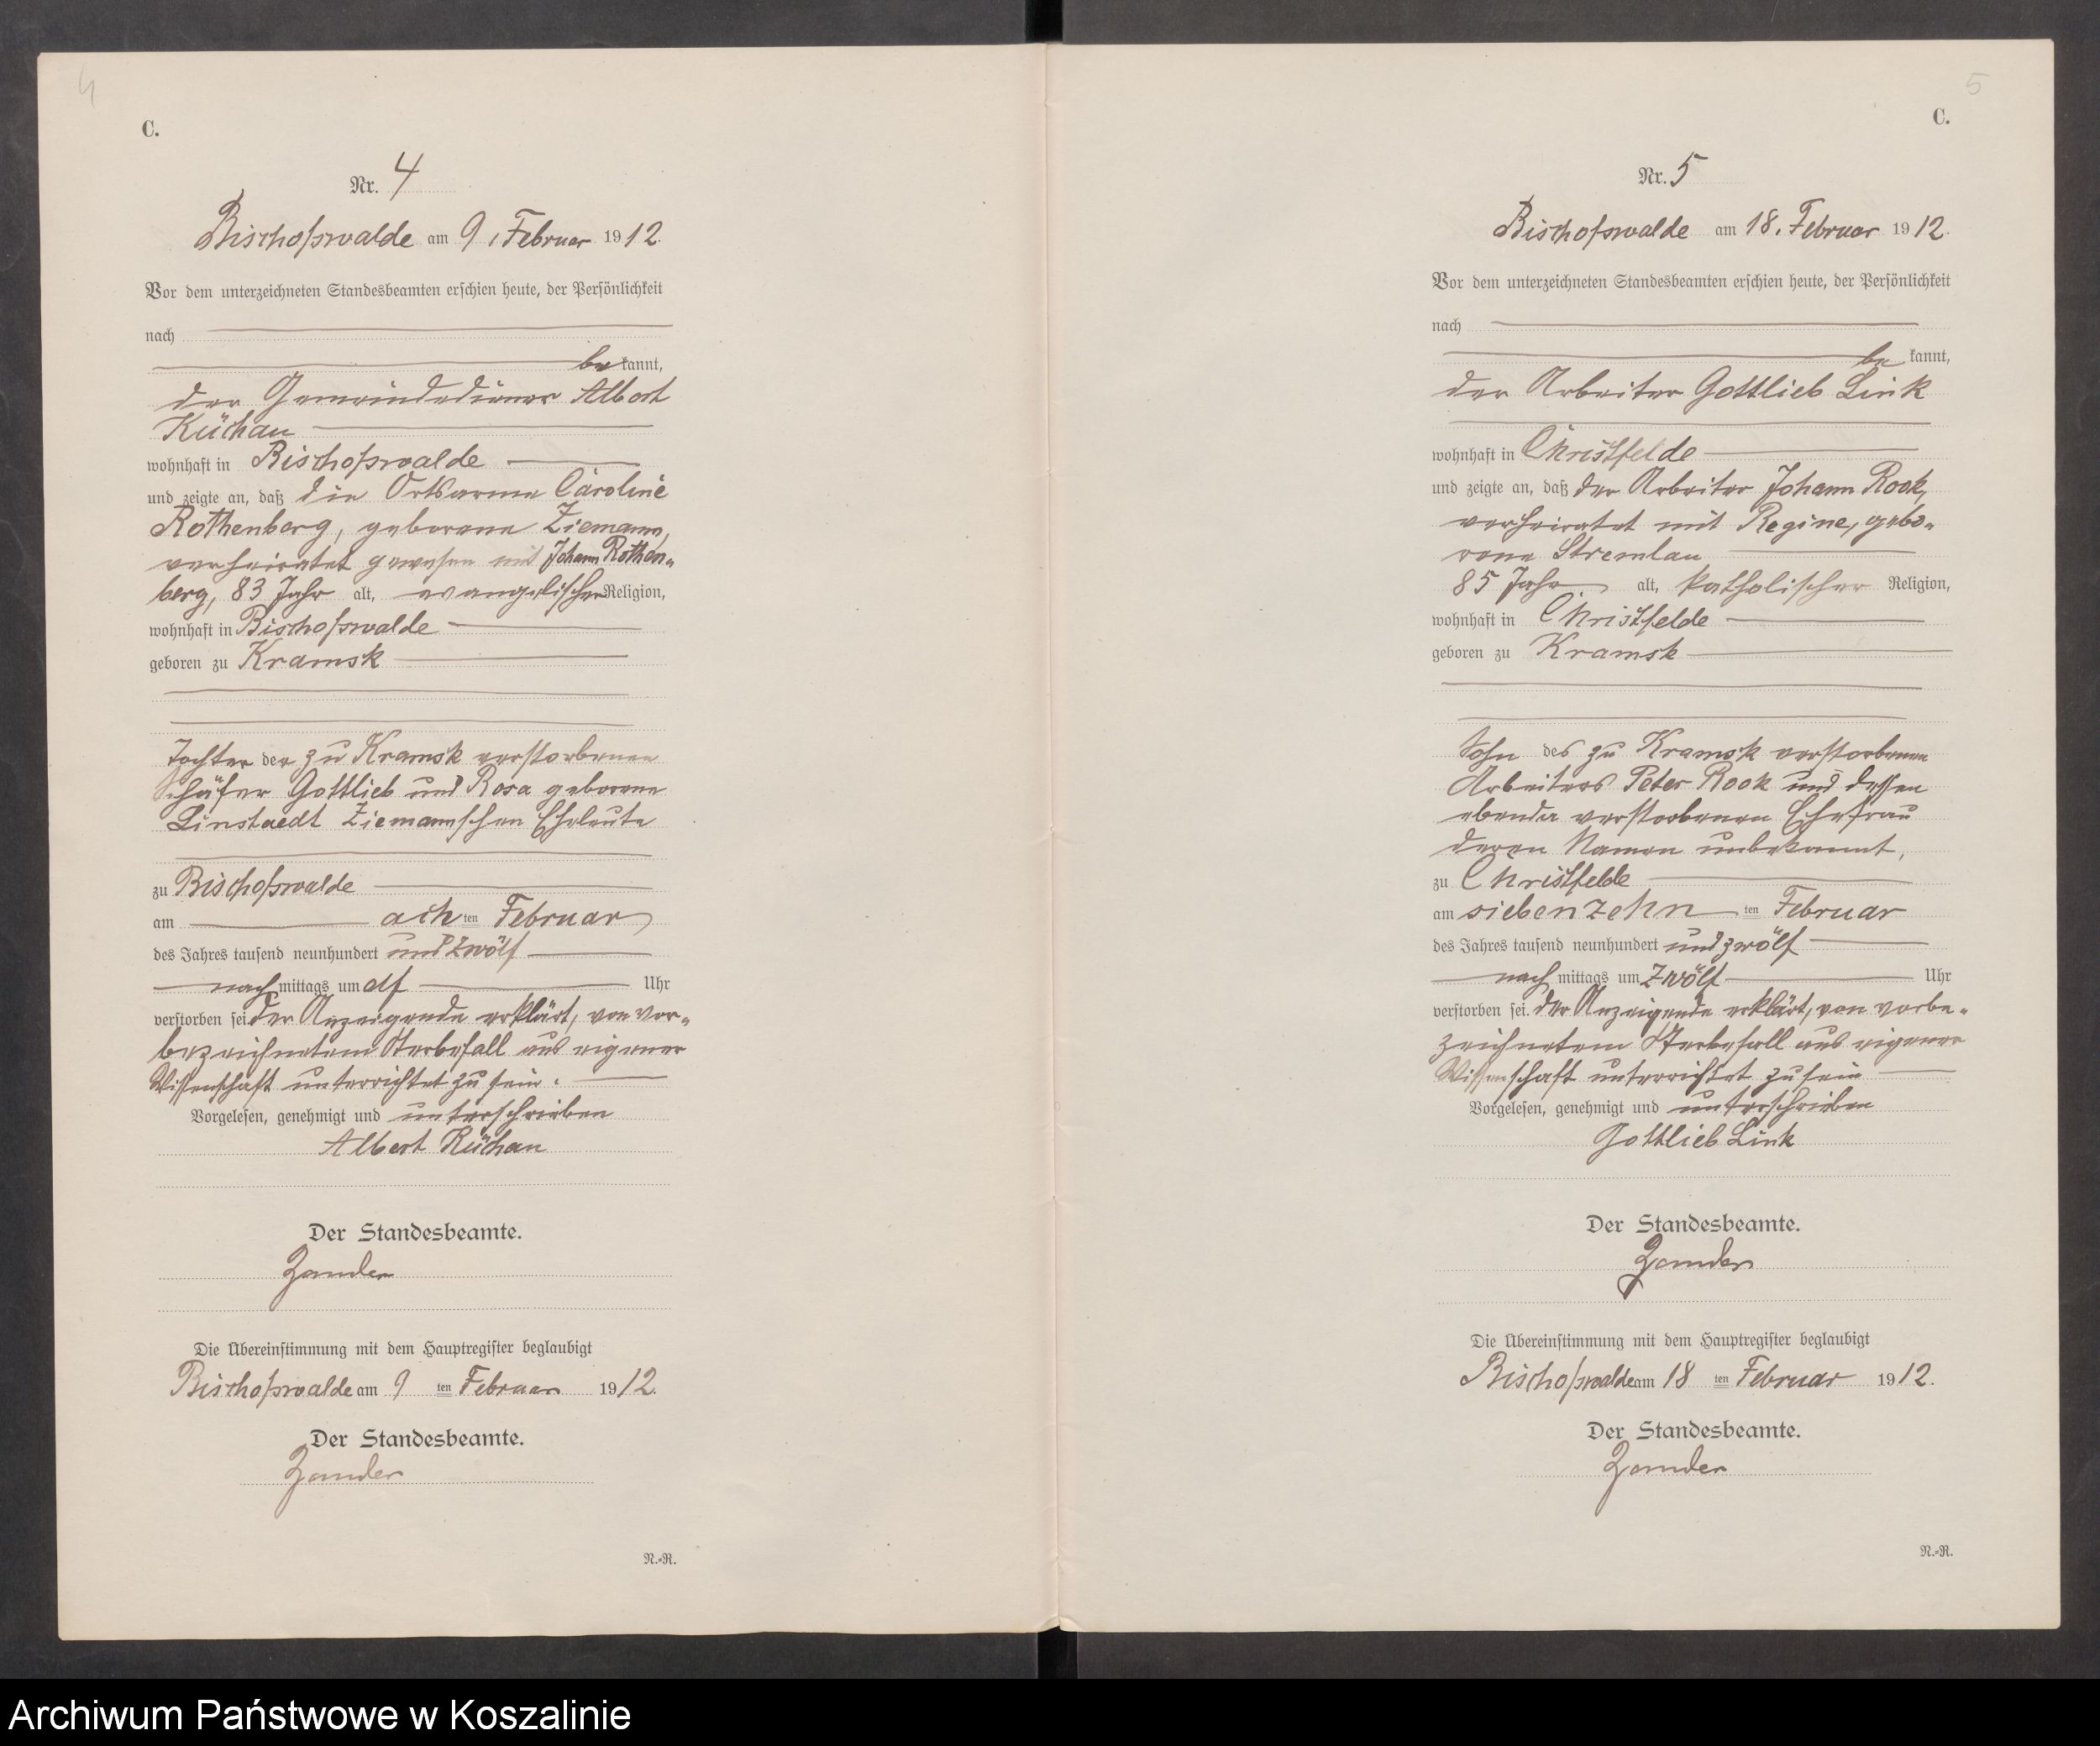 4
C.
Nr. 4
Bischofswalde am 9. Februar 1912.
Vor dem unterzeichneten Standesbeamten erschien heute, der Persönlichkeit
nach
bekannt,
der Gemeindediener Albert
Küchau
wohnhaft in Bischofswalde
und zeigte an, daß die Ortsarme Caroline
Rothenberg, geborene Ziemann,
verheiratet gewesen mit Johann Rothen-
berg, 83 Jahr alt, evangelischer Religion,
wohnhaft in Bischofswalde
geboren zu Kramsk
Tochter der zu Kramsk verstorbenen
Schäfer Gottlieb und Rosa geborene
Linstaedt Ziemannschen Eheleute
zu Bischofswalde
am achten Februar
des Jahres tausend neunhundert und zwölf
nachmittags um elf Uhr
verstorben sei. Der Anzeigende erklärt, von vor-
bezeichnetem Sterbefall aus eigener
Wissenschaft unterrichtet zu sein.
Vorgelesen, genehmigt und unterschrieben
Albert Küchau
Der Standesbeamte.
Zander
Die Übereinstimmung mit dem Hauptregister beglaubigt
Bischofswalde am 9 ten Februar 1912.
Der Standesbeamte.
Zander
N.-R.
5
C.
Nr. 5
Bischofswalde am 18. Februar 1912.
Vor dem unterzeichneten Standesbeamten erschien heute, der Persönlichkeit
nach
be kannt,
der Arbeiter Gottlieb Link
wohnhaft in Christfelde
und zeigte an, daß der Arbeiter Johann Rook,
verheiratet mit Regine, gebo-
rene Stremlau
85 Jahr alt, katholischer Religion,
wohnhaft in Christfelde
geboren zu Kramsk
Sohn des zu Kramsk verstorbenen
Arbeiters Peter Rook und dessen
ebenda verstorbenen Ehefrau
deren Namen unbekannt,
zu Christfelde
am siebenzehn ten Februar
des Jahres tausend neunhundert und zwölf
nach mittags um zwölf Uhr
verstorben sei. Der Anzeigende erklärt, von vorbe-
zeichnetem Sterbefall aus eigener
Wissenschaft unterrichtet zu sein
Vorgelesen, genehmigt und unterschrieben
Gottlieb Link
Der Standesbeamte.
Zander
Die Übereinstimmung mit dem Hauptregister beglaubigt
Bischofswalde am 18 ten Februar 1912.
Der Standesbeamte.
Zander
N.-R.
Archiwum Państwowe w Koszalinie